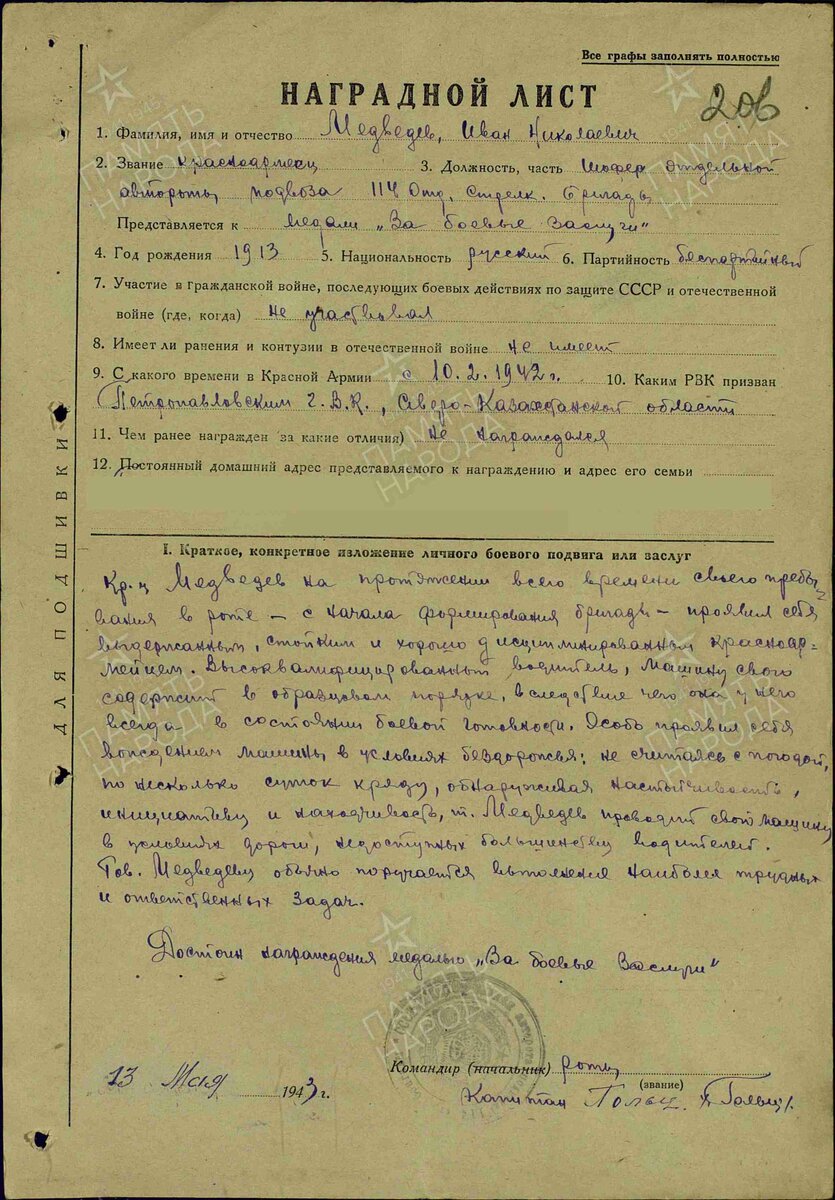 Все графы заполнять полностью
НАГРАДНОЙ ЛИСТ
206
1. Фамилия, имя и отчество Медведев, Иван Николаевич
2. Звание Красноармеец 3. Должность, часть Шофер отдельной
автороты подвоза 114 Отд. Стрелк. Бригады
Представляется к медали „За боевые заслуги"
4. Год рождения 1913 5. Национальность русский 6. Партийность беспартийный
7. Участие в гражданской войне, последующих боевых действиях по защите СССР и отечественной
войне (где, когда) не участвовал
8. Имеет ли ранения и контузии в отечественной войне не имеет
9. С какого времени в Красной Армии с 10.2.1942 г. 10. Каким РВК призван
Петропавловским Г.В.К., Северо-Казахстанской области
11. Чем ранее награжден за какие отличия) не награждался
12. Постоянный домашний адрес представляемого к награждению и адрес его семьи
ДЛЯ ПОДШИВКИ
I. Краткое, конкретное изложение личного боевого подвига или заслуг
Кр-ц Медведев на протяжении всего времени своего пребы-
вания в роте – с начала формирования бригады – проявил себя
выдержанным, стойким и хорошо дисциплинированным красноар-
мейцем. Высококвалифицированный водитель, машину свою
содержит в образцовом порядке, вследствие чего она у него
всегда в состоянии боевой готовности. Особо проявил себя
вождением машины в условиях бездорожья: не считаясь с погодой,
по несколько суток кряду, обнаруживая настойчивость,
инициативу и находчивость, т. Медведев проводит свою машину
в условиях дорог, недоступных большинству водителей.
Тов. Медведеву обычно поручается выполнение наиболее трудных
и ответственных задач.
Достоин награждения медалью „За боевые Заслуги"
Командир (начальник) роты
(звание)
13 Мая 1943 г.
Капитан Гольц /Гольц/.
ПАМЯТЬ НАРОДА